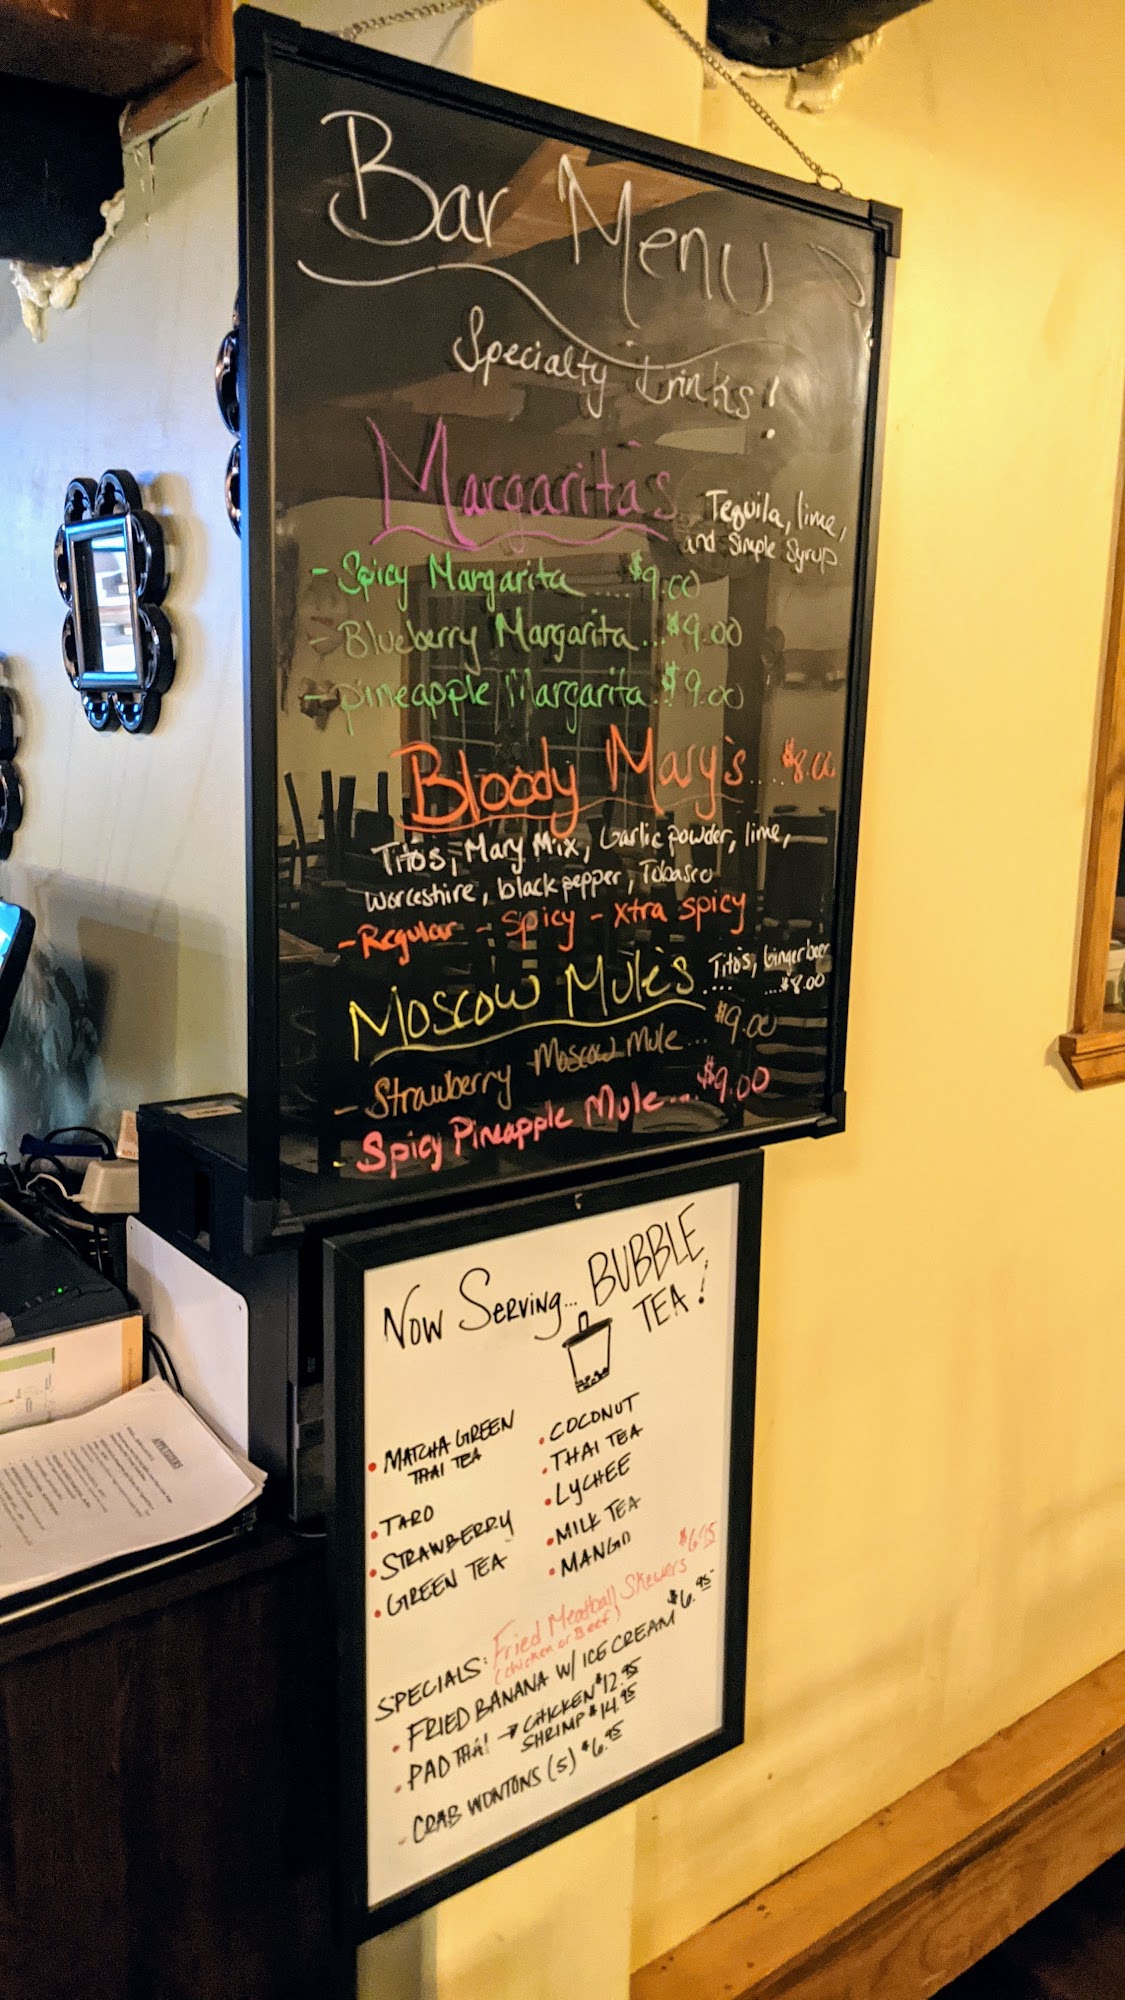 Bar Menu
Specialty Drinks!
Margarita's
Tequila, lime,
and Simple Syrup
- Spicy Margarita .... $9.00
- Blueberry Margarita ... $9.00
- pineapple Margarita .. $9.00
Bloody Mary's .... $8.00
Tito's, Mary Mix, Garlic powder, lime,
worceshire, black pepper, Tobasco
- Regular - Spicy - xtra spicy
Moscow Mule's
Tito's, Ginger beer
.... .... $8.00
- Strawberry Moscow Mule ... $9.00
- Spicy Pineapple Mule .... $9.00
Now Serving... BUBBLE
TEA!
• MATCHA GREEN
THAI TEA
• TARO
• STRAWBERRY
• GREEN TEA
• COCONUT
• THAI TEA
• LYCHEE
• MILK TEA
• MANGO
SPECIALS: Fried Meatball Skewers $6.95
(chicken or Beef)
• FRIED BANANA W/ ICE CREAM $6.95
• PAD THAI → CHICKEN $12.95
SHRIMP $14.95
• CRAB WONTONS (5) $6.95
APPETIZERS